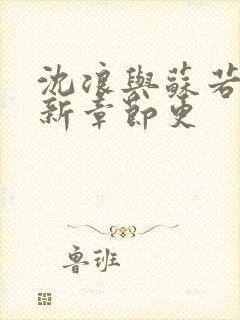 沈浪與蘇若
新章節更
魯班